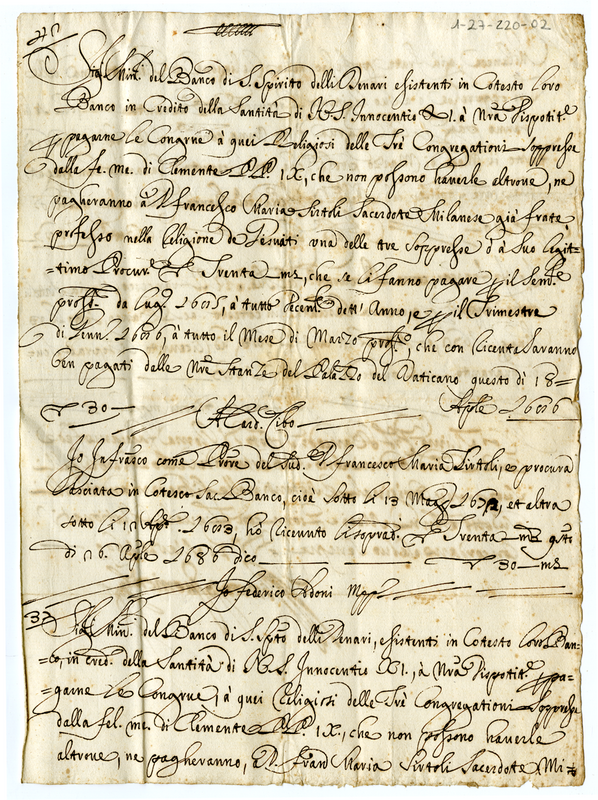 1-27-220-02
Sig.ri Min.ri del Banco di S. Spirito delli Denari esistenti in Cotesto loro
Banco in Credito della Santità di N. S. Innocentio XI. à Nr̃a Dispositt.e
pagarne le Congrue à quei Religiosi delle Trè Congregationi Soppresse
dalla fe. me. di Clemente PP. IX, che non possono haverle altrove, ne
pagheranno à D. Francesco Maria Sirtoli Sacerdote Milanese già frate
professo nella Religione de Gesuati una delle tre Soppresse ò à suo legit-
=timo Procur.e Trenta m.ta, che se li fanno pagare p il Sem.re
pross.o da Lug.o à tutto Decem.e dett' Anno, e p il Trimestre
di Genn.o 1686, à tutto il Mese di Marzo pross.o, che con ricevuta saranno
ben pagati dalle Nr̃e Stanze del Palazzo del Vaticano questo di 18=
30 — A. Card. Cibo — Aple 1686
Io Infrascõ come Proc.re del Sud.o D. Francesco Maria Sirtoli, e procura
lasciata in Cotesto Sac. Banco, cioè sotto li 13 Mag.o 1672, et altra
sotto li, hò ricevuto li soprad.i Trenta m.ta q.sto
di 26. Aple 1686 dico — 30 — m.ta
Io Federico
37
Sig.ri Min.ri del Banco di S. Spto delli Denari, esistenti in Cotesto loro Ban-
=co, in cred.o della Santità di N. S. Innocentio XI., à Nr̃a Dispositt.e p pa-
=garne le Congrue, à quei Religiosi delle Trè Congregationi Soppresse
dalla fel. me. di Clemente PP. IX., che non possono haverle
altrove, ne pagheranno, à D. Fran.co Maria Sirtoli Sacerdote Mi-